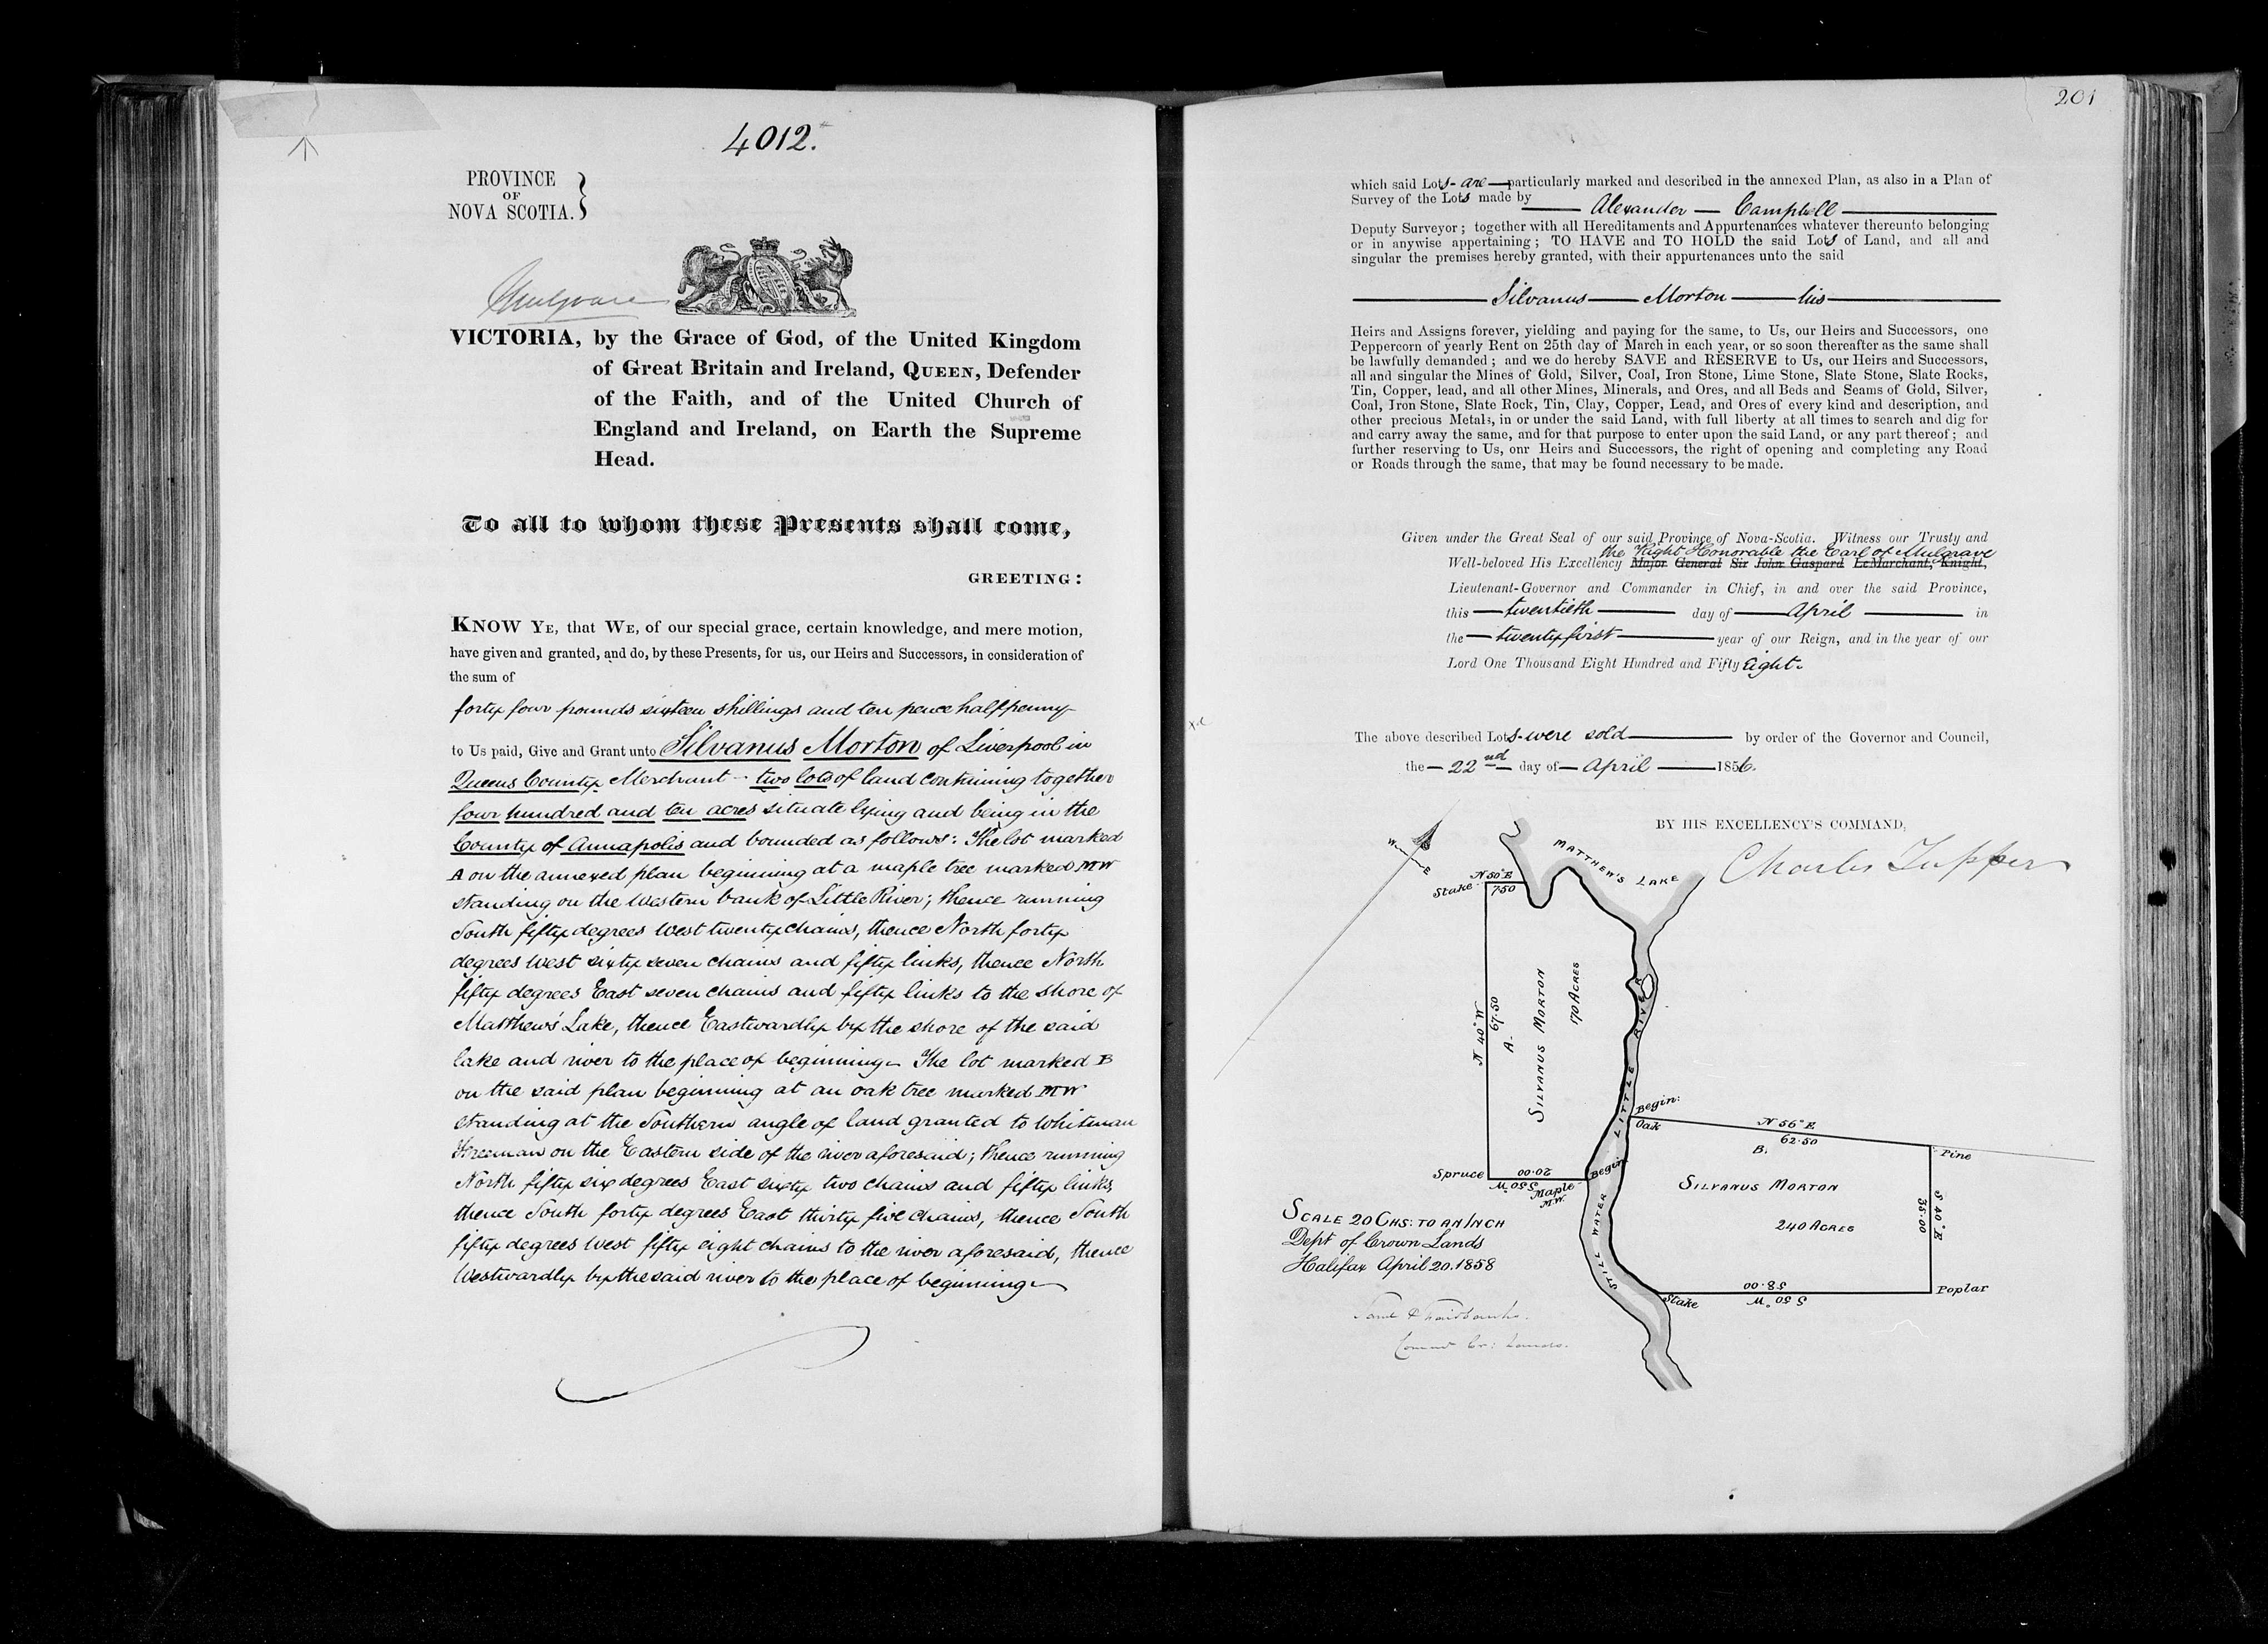 4012.
PROVINCE
OF
NOVA SCOTIA.
Mulgrave
VICTORIA, by the Grace of God, of the United Kingdom
of Great Britain and Ireland, QUEEN, Defender
of the Faith, and of the United Church of
England and Ireland, on Earth the Supreme
Head.
To all to whom these Presents shall come,
GREETING:
KNOW YE, that WE, of our special grace, certain knowledge, and mere motion,
have given and granted, and do, by these Presents, for us, our Heirs and Successors, in consideration of
the sum of
forty four pounds sixteen shillings and ten pence halfpenny
to Us paid, Give and Grant unto Silvanus Morton of Liverpool in
Queens County Merchant - two lots of land containing together
four hundred and ten acres situate lying and being in the
County of Annapolis and bounded as follows: The lot marked
A on the annexed plan beginning at a maple tree marked MW
standing on the Western bank of Little River; thence running
South fifty degrees West twenty chains, thence North forty
degrees West sixty seven chains and fifty links, thence North
fifty degrees East seven chains and fifty links to the shore of
Matthew's Lake, thence Eastwardly by the shore of the said
lake and river to the place of beginning. The lot marked B
on the said plan beginning at an oak tree marked MW
standing at the Southern angle of land granted to Whitman
Freeman on the Eastern side of the river aforesaid; thence running
North fifty six degrees East sixty two chains and fifty links,
thence South forty degrees East thirty five chains, thence South
fifty degrees West fifty eight chains to the river aforesaid, thence
Westwardly by the said river to the place of beginning
201
which said Lots are particularly marked and described in the annexed Plan, as also in a Plan of
Survey of the Lots made by Alexander Campbell
Deputy Surveyor; together with all Hereditaments and Appurtenances whatever thereunto belonging
or in anywise appertaining; TO HAVE and TO HOLD the said Lots of Land, and all and
singular the premises hereby granted, with their appurtenances unto the said
Silvanus Morton his
Heirs and Assigns forever, yielding and paying for the same, to Us, our Heirs and Successors, one
Peppercorn of yearly Rent on 25th day of March in each year, or so soon thereafter as the same shall
be lawfully demanded; and we do hereby SAVE and RESERVE to Us, our Heirs and Successors,
all and singular the Mines of Gold, Silver, Coal, Iron Stone, Lime Stone, Slate Stone, Slate Rocks,
Tin, Copper, lead, and all other Mines, Minerals, and Ores, and all Beds and Seams of Gold, Silver,
Coal, Iron Stone, Slate Rock, Tin, Clay, Copper, Lead, and Ores of every kind and description, and
other precious Metals, in or under the said Land, with full liberty at all times to search and dig for
and carry away the same, and for that purpose to enter upon the said Land, or any part thereof; and
further reserving to Us, onr Heirs and Successors, the right of opening and completing any Road
or Roads through the same, that may be found necessary to be made.
Given under the Great Seal of our said Province of Nova-Scotia. Witness our Trusty and
the Right Honorable the Earl of Mulgrave
Well-beloved His Excellency Major General Sir John Gaspard LeMarchant, Knight,
Lieutenant-Governor and Commander in Chief, in and over the said Province,
this twentieth day of April in
the twenty first year of our Reign, and in the year of our
Lord One Thousand Eight Hundred and Fifty Eight.
The above described Lots were sold by order of the Governor and Council,
the 22nd day of April 1856.
BY HIS EXCELLENCY'S COMMAND,
Charles Tupper
W
E
MATTHEW'S LAKE
Stake
N 50° E
7.50
N 40° W
67.50
A.
SILVANUS MORTON
170 ACRES
LITTLE RIVER
Begin:
Oak
N 56° E
62.50
B.
Pine
Spruce
20.00
S 50° W
Maple
M.W.
Begin
SILVANUS MORTON
240 ACRES
S 40° E
35.00
STILL WATER
58.00
S 50° W
Stake
Poplar
SCALE 20 CHS: TO AN INCH
Dept of Crown Lands
Halifax April 20. 1858
Saml P Fairbanks.
Commr Cr: Lands.